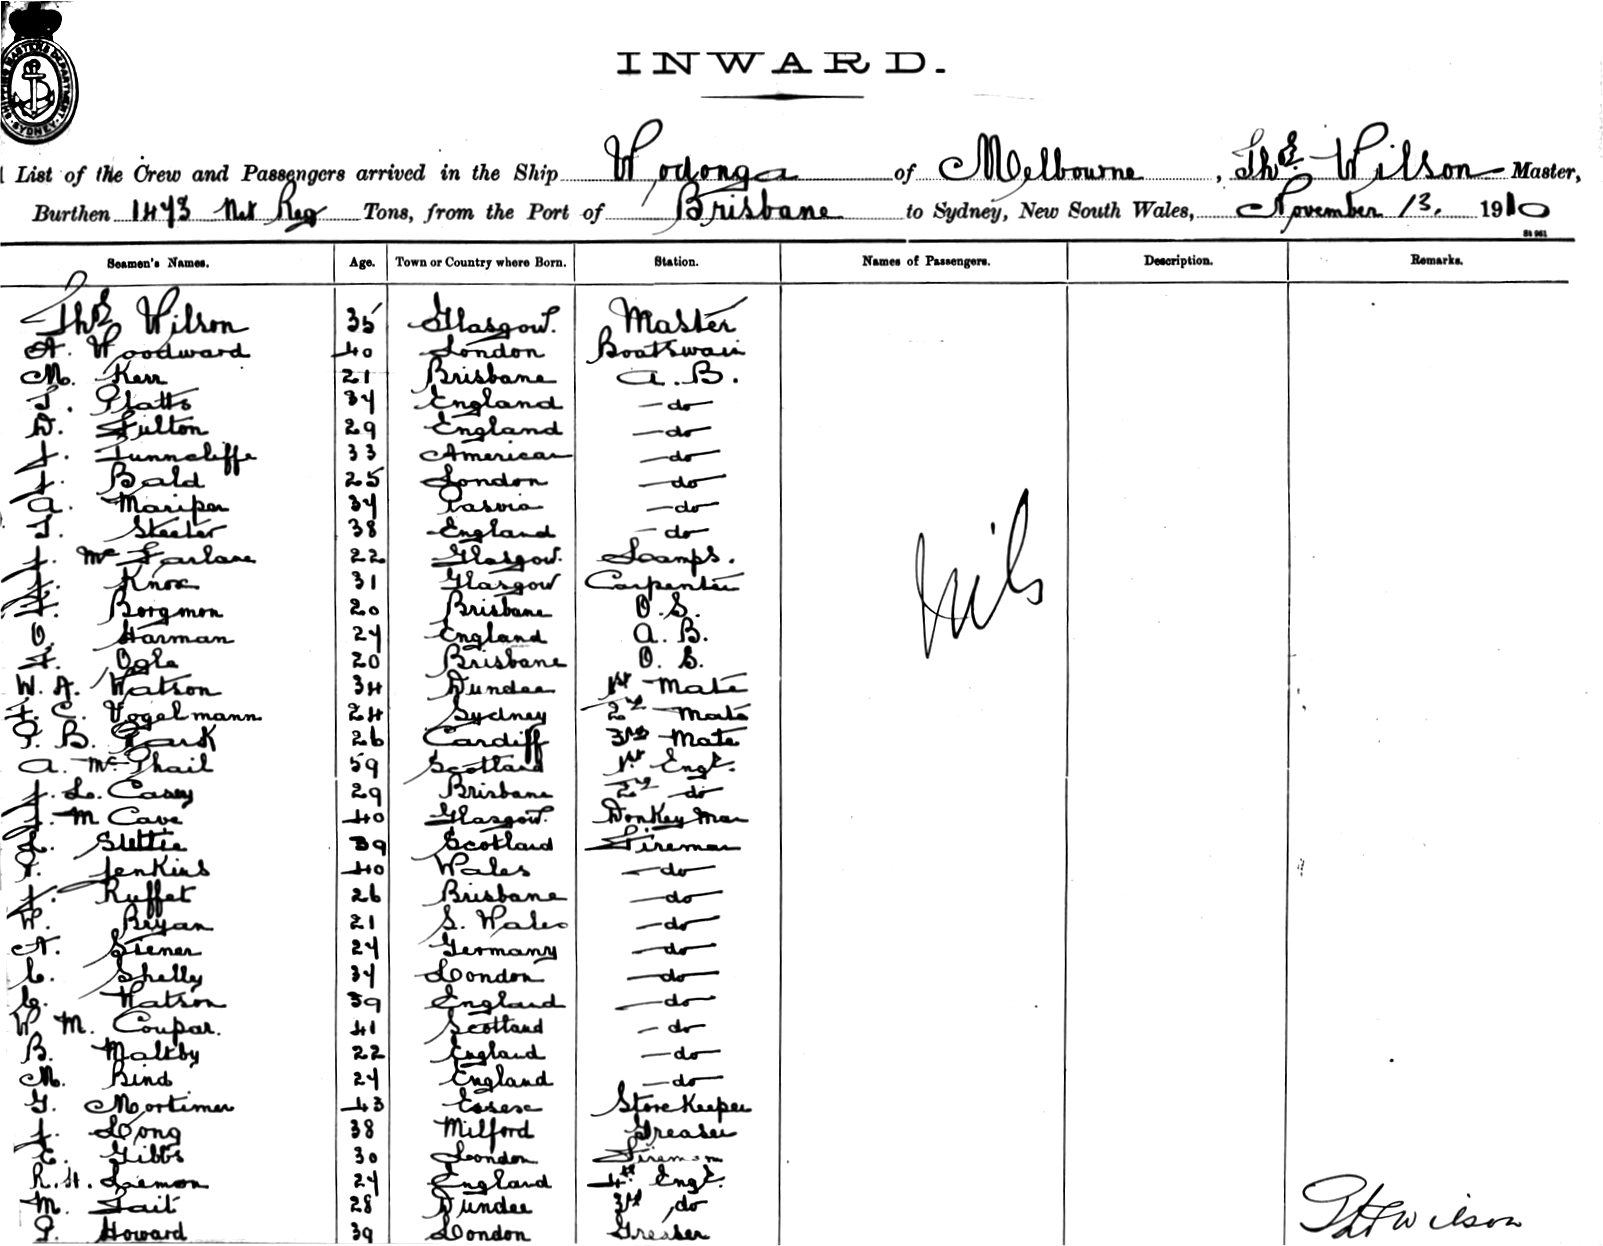 SHIPPING MASTERS DEPARTMENT SYDNEY
INWARD.
List of the Crew and Passengers arrived in the Ship Wodonga of Melbourne, Thos Wilson Master,
Burthen 1473 Net Reg Tons, from the Port of Brisbane to Sydney, New South Wales, November 13. 1910
Seamen's Names. Age. Town or Country where Born. Station. Names of Passengers. Description. Remarks.
Thos Wilson 35 Glasgow. Master
A. Woodward 40 London Boatswain
M. Kerr 21 Brisbane A.B.
T. Platts 34 England do
D. Fulton 29 England do
J. Tunnecliffe 33 American do
J. Bald 25 London do
A. Mariper 34 do
T. Steeter 38 England do
J. McFarlane 22 Glasgow. Lamps.
J. Knox 31 Glasgow Carpenter
F. Borgmon 20 Brisbane O.S.
O. Harman 24 England A.B.
F. Ogle 20 Brisbane O.S.
W. A. Watson 34 Dundee 1st Mate
F. C. Vogelmann 24 Sydney 2nd Mate
P. B. Park 26 Cardiff 3rd Mate
A. McPhail 59 Scotland 1st Engr.
J. L. Casey 29 Brisbane 2nd do
J. McCave 40 Glasgow. Donkey man
L. Slettie 39 Scotland Fireman
P. Jenkins 40 Wales do
J. Ruffet 26 Brisbane do
W. Bryan 21 S. Wales do
A. Siener 24 Germany do
C. Shelly 34 London do
C. Watson 39 England do
W M. Coupar. 41 Scotland do
B. Maltby 22 England do
M. Bind 24 England do
G. Mortimer 43 Essex Store Keeper
J. Long 38 Milford Greaser
E. Gibbs 30 London Fireman
R. H. Liemon 24 England 4th Engr.
M. Tait 28 Dundee 3rd do
P. Howard 39 London Greaser
Nil
Wilson